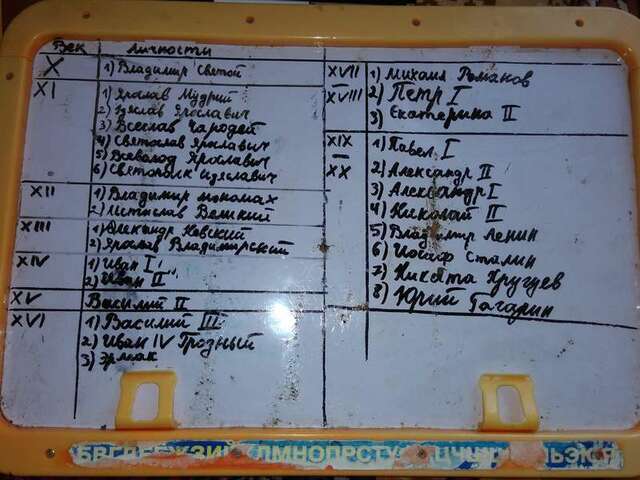 Век личности
X 1) Владимир Святой
XI 1) Ярослав Мудрий
2) Изяслав Ярославич
3) Всеслав Чародей
4) Святослав Ярославич
5) Всеволод Ярославич
6) Святополк Изяславич
XII 1) Владимир мономах
2) Мстислав Великий
XIII 1) Александр Невский
2) Ярослав Владимирский
XIV 1) Иван I
2) Иван II
XV Василий II
XVI 1) Василий III
2) Иван IV Грозный
3) Эрмак
XVII 1) Михаил Романов
XVIII 2) Петр I
3) Екатерина II
XIX 1) Павел I
— 2) Александр II
XX 3) Александр I
4) Николай II
5) Владимир Ленин
6) Иосиф Сталин
7) Никита Хрущев
8) Юрий Гагарин